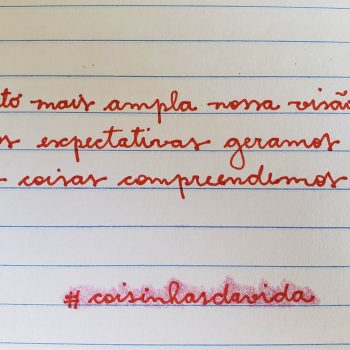 to mais ampla nossa visão
s expectativas geramos
coisas compreendemos
#coisinhasdavida